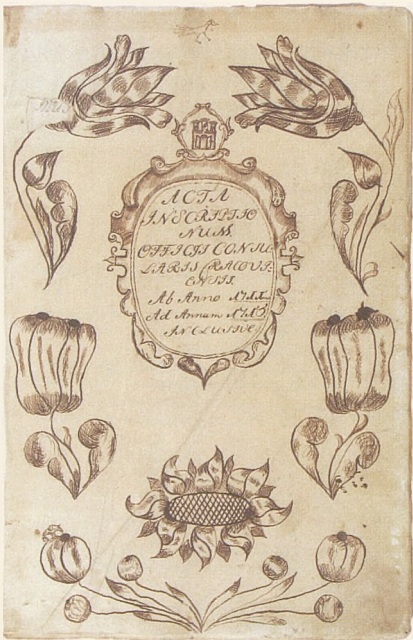 ACTA
INSCRIPTIO
NUM
OFFICII CONSU-
LARIS CRACOVI-
ENSIS.
Ab Anno
Ad Annum
INCLUSIVE